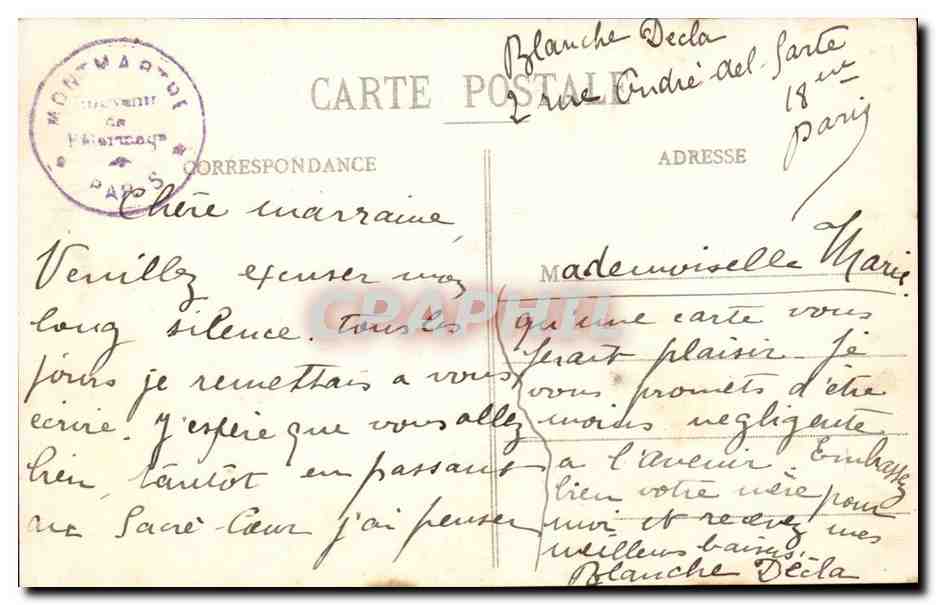 Blanche Decla
2 rue André del Sarte
18eme
Paris
CARTE POSTALE
MONTMARTRE
Souvenir
de
Pèlerinage
PARIS
CORRESPONDANCE
ADRESSE
Chère marraine,
Veuillez excuser mon
long silence. tous les
jours je remettais a vous
écrire. J'espère que vous allez
bien, tantôt en passant
au Sacré-Cœur j'ai penser
Mademoiselle Marie
qu'une carte vous
ferait plaisir. Je
vous promets d'être
moins negligente
a l'avenir. Embrassez
bien votre mère pour
moi et recevez mes
meilleurs baisers.
Blanche Décla
CPAPHIL